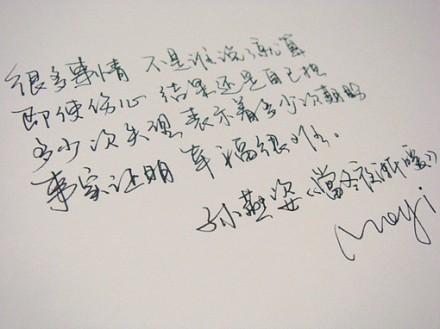 很多事情 不是谁说了就算
即使伤心 结果还是自己担
多少次失望表示着多少次期盼
事实证明 幸福很难。
孙燕姿《當冬夜渐暖》